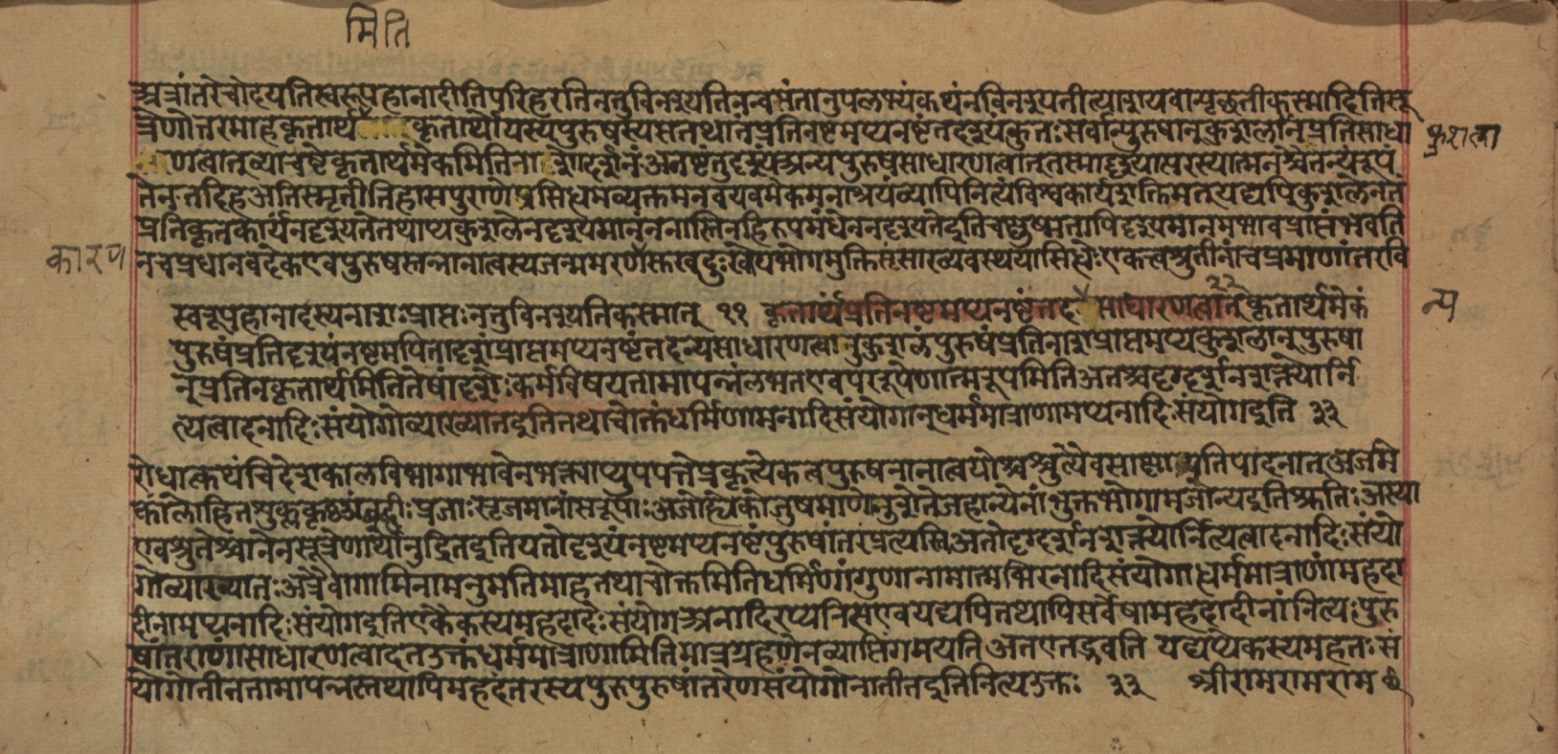 मिति
अत्रांतरे चोदयति स्वरूपहानादीति परिहरति नतु विनश्यति नन्वसंतानुपलभ्यं कथं न विनश्यतीत्याशयवान्पृच्छती कस्मादिति सू
त्रेणोत्तरमाह कृतार्थ कृतार्थो यस्य पुरुषस्य स तथा तं प्रति नष्टमप्यनष्टं तदृश्यं कुतः सर्वान्पुरुषानुकुशलान् प्रति साधा
रणत्वात् व्याचष्टे कृतार्थमेकमिति नाशोदर्शनं अनष्टं तु दृश्यं अन्यपुरुषसाधारणत्वात् तस्मादृश्यात्परस्यात्मनश्चैतन्यं रूपं
तेन तदिह श्रुतिस्मृतीतिहासपुराणप्रसिद्धमव्यक्तमनवयवमेकमनाश्रयं व्यापि नित्यं विश्वकार्यशक्तिमत् यद्यपि कुशलेन तं
प्रति कृतकार्यं न दृश्यते तथाप्यकुशलेन दृश्यमानं न नास्ति नहि रूपमंधेन न दृश्यते इति चक्षुष्मतापि दृश्यमानमभावप्राप्तं भवति
कारण
न च प्रधानवदेक एव पुरुषस्तन्नानात्वस्य जन्ममरणसुखदुःखोपभोगमुक्तिसंसारव्यवस्थया सिद्धेः एकत्वश्रुतीनां च प्रमाणांतरवि
स्वरूपहानादस्य नाशः प्राप्तः न तु विनश्यति कस्मात् २१ कृतार्थं प्रति नष्टमप्यनष्टं तद साधारणत्वात् २२ कृतार्थमेकं
न्य
पुरुषं प्रति दृश्यं नष्टमपि नाशं प्राप्तमप्यनष्टं तदन्यसाधारणत्वात् कुशलं पुरुषं प्रति नाशं प्राप्तमप्यकुशलान् पुरुषा
न् प्रति न कृतार्थमिति तेषां दृशेः कर्मविषयतामापन्नं लभत एव पररूपेणात्मरूपमिति अतश्च दृग्दर्शनशक्त्योर्नि
त्यत्वादनादिः संयोगो व्याख्यात इति तथा चोक्तं धर्मिणामनादिसंयोगात् धर्ममात्राणामप्यनादिः संयोग इति २२
रोधात्कथंचिद्देशकालविभागाभावेन भक्त्याप्युपपत्तेः प्रकृत्येकत्वपुरुषनानात्वयोश्च श्रुत्यैव साक्षात्प्रतिपादनात् अजामे
कां लोहितशुक्लकृष्णां बह्वीः प्रजाः सृजमानां सरूपाः अजो ह्येको जुषमाणोनुशेते जहात्येनां भुक्तभोगामजोन्य इति श्रुतिः अस्या
एव श्रुतेश्चानेन सूत्रेणार्थोनूदित इति यतो दृश्यं नष्टमप्यनष्टं पुरुषांतरं प्रत्यस्ति अतो दृग्दर्शनशक्त्योर्नित्यत्वादनादिः संयो
गो व्याख्यातः अत्रैवागामिनामनुमतिमाह तथा चोक्तमिति धर्मिणां गुणानामात्मभिरनादिसंयोगाद्धर्ममात्राणां महदा
दीनामप्यनादिः संयोग इति एकैकस्य महदादेः संयोग अनादिरप्यनित्स एव यद्यपि तथापि सर्वेषां महदादीनां नित्यः पुरु
षांतराणां साधारणत्वादत उक्तं धर्ममात्राणामिति मात्रग्रहणेन व्याप्तिं गमयति अत एतद्भवति यद्यप्येकस्य महतः सं
योगोतीततामापन्नस्तथापि महदंतरस्य पुरुपुरुषांतरेण संयोगो नातीत इति नित्य उक्तः २२ श्रीराम राम राम